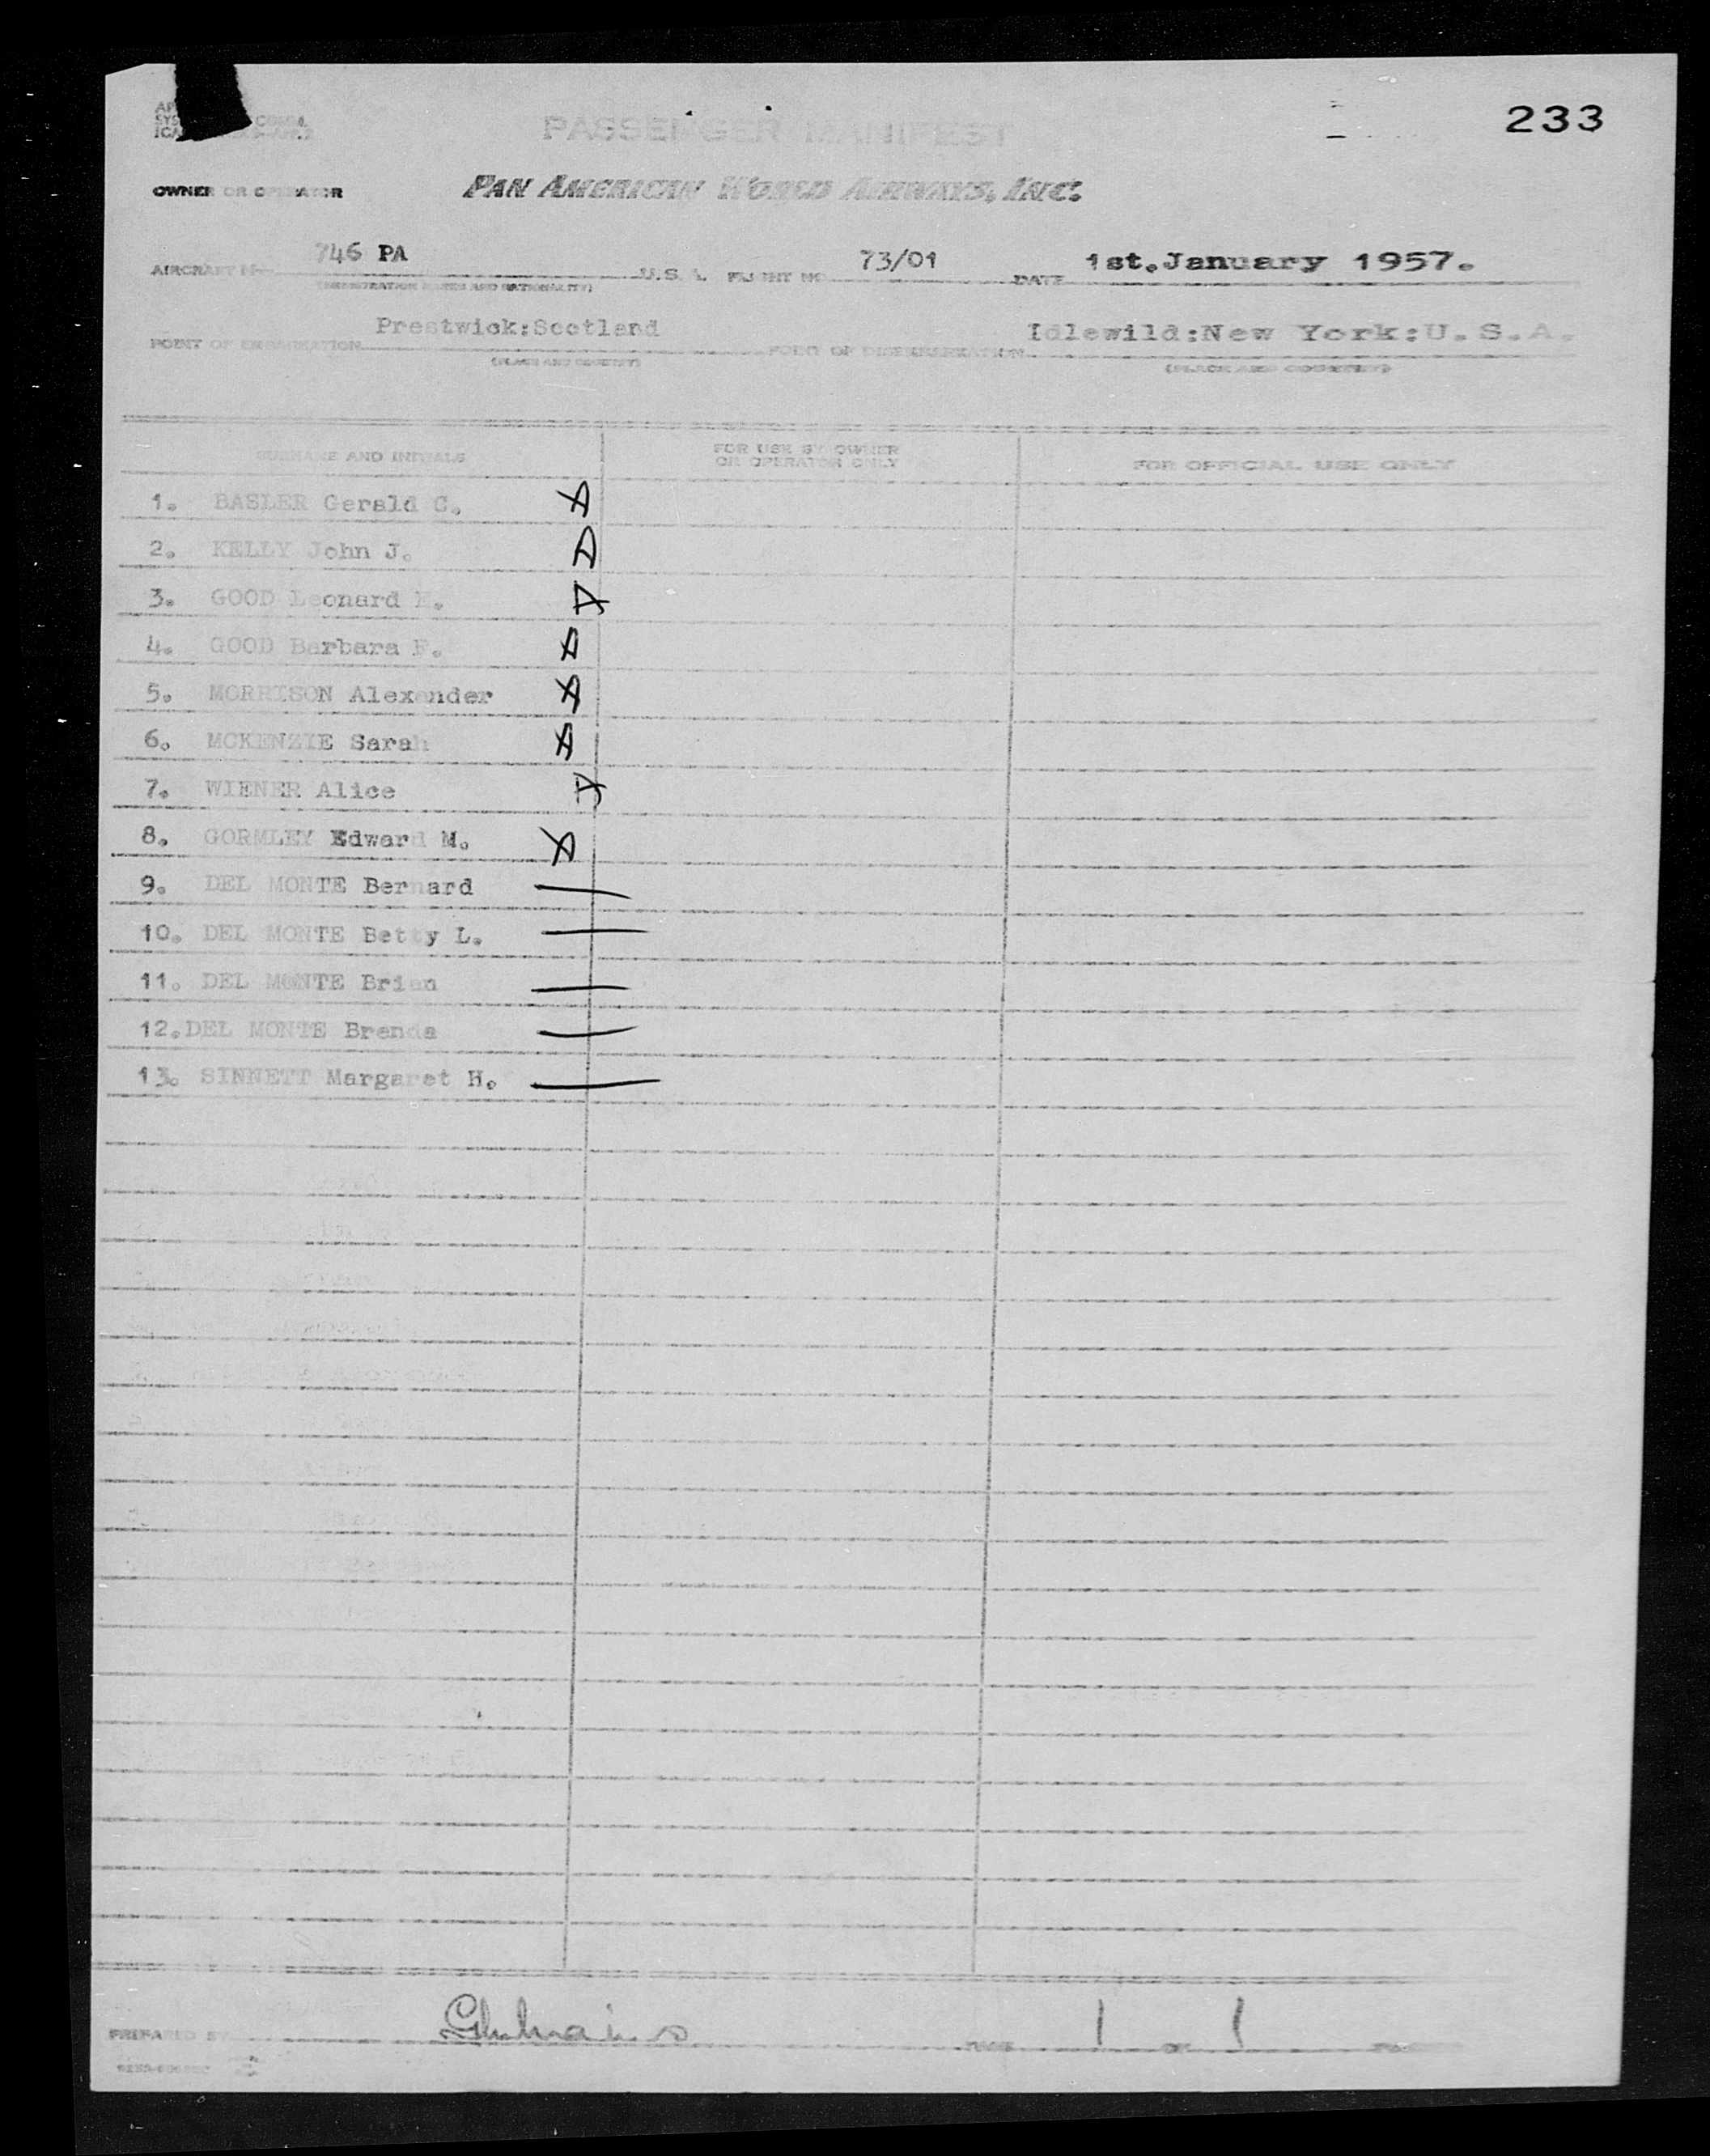 233
PASSENGER MANIFEST
OWNER OR OPERATOR PAN AMERICAN WORLD AIRWAYS, INC.
AIRCRAFT 746 PA U.S.A. FLIGHT NO 73/01 DATE 1st.January 1957.
(REGISTRATION MARKS AND NATIONALITY)
POINT OF EMBARKATION Prestwick:Scotland POINT OF DISEMBARKATION Idlewild:New York:U.S.A.
(PLACE AND COUNTRY) (PLACE AND COUNTRY)
SURNAME AND INITIALS FOR USE BY OWNER OR OPERATOR ONLY FOR OFFICIAL USE ONLY
1. BASLER Gerald C.
2. KELLY John J.
3. GOOD Leonard
4. GOOD Barbara F.
5. MORRISON Alexander
6. MCKENZIE Sarah
7. WIENER Alice
8. GORMLEY Edward M.
9. DEL MONTE Bernard
10. DEL MONTE Betty L.
11. DEL MONTE Brian
12. DEL MONTE Brenda
13. SINNETT Margaret H.
PREPARED BY PAGE 1 OF 1